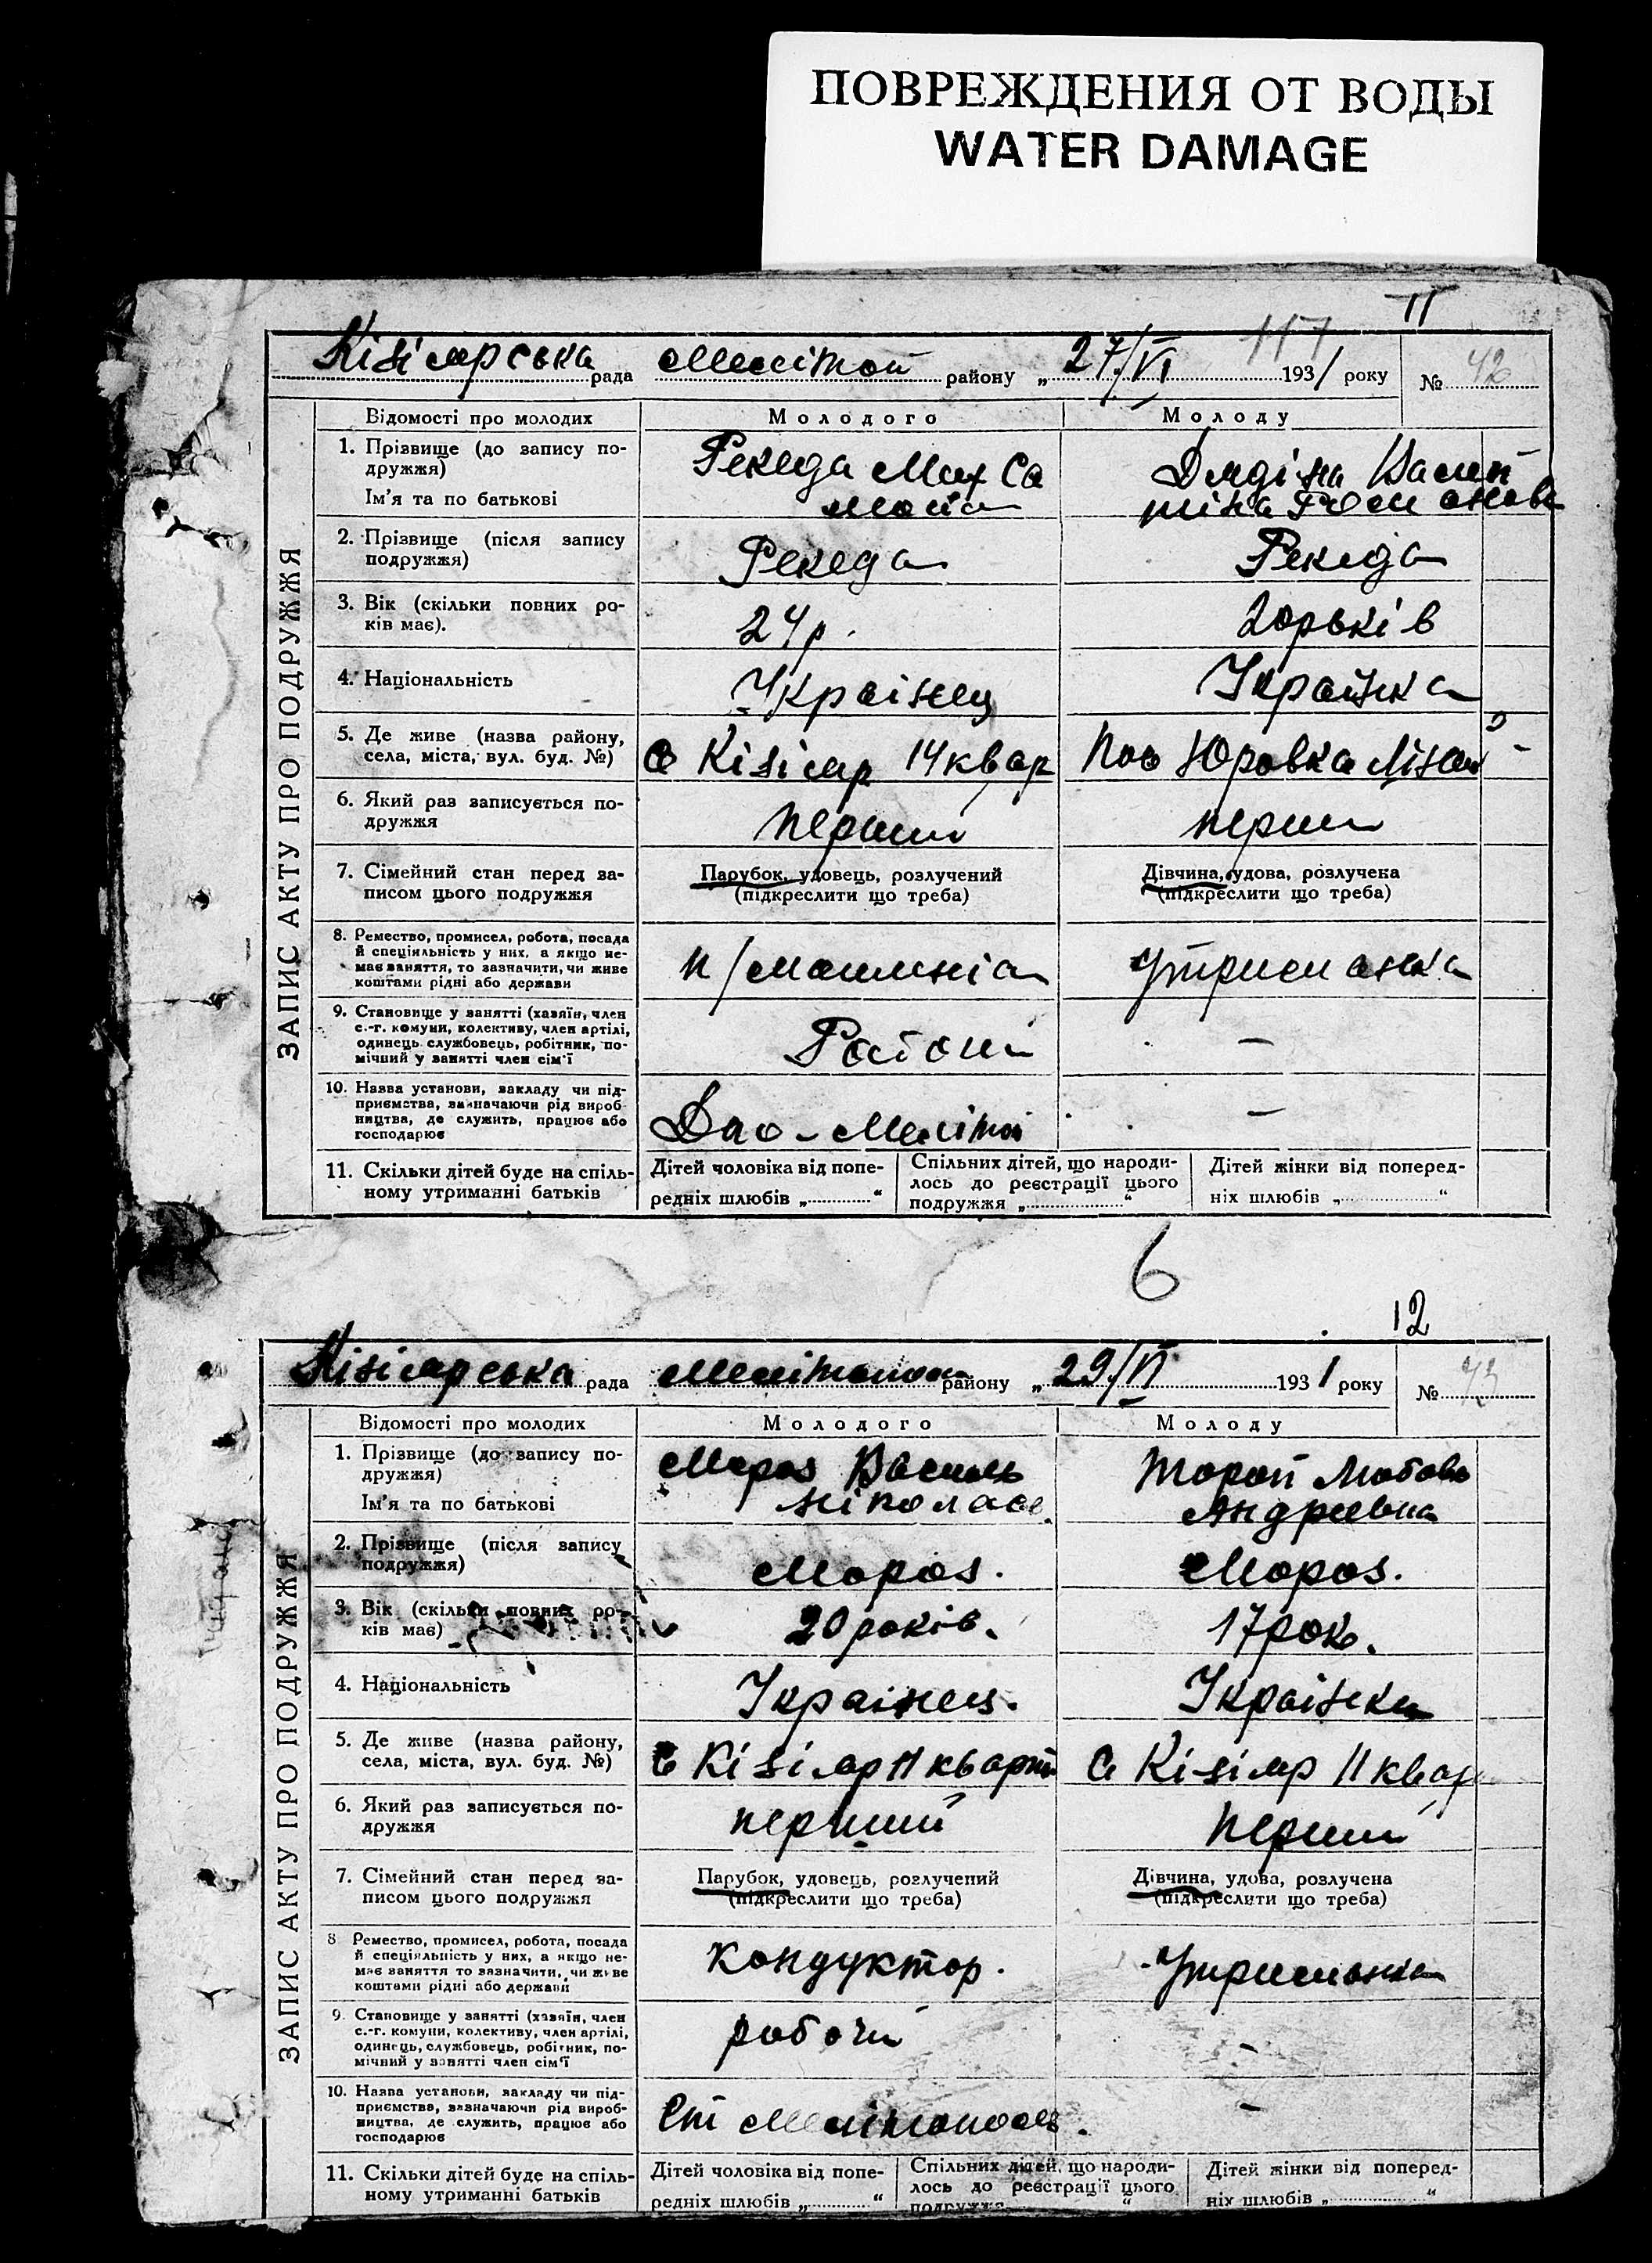 ПОВРЕЖДЕНИЯ ОТ ВОДЫ
WATER DAMAGE
11
117
Кізіярська рада Меліттоп району „ 27/VI 1931 року № 42
ЗАПИС АКТУ ПРО ПОДРУЖЖЯ
Відомості про молодих Молодого Молоду
1. Прізвище (до запису по-
дружжя)
Ім'я та по батькові
Рекеда Мих Са
2. Прізвище (після запису
подружжя)
Рекеда Рекеда
3. Вік (скільки повних ро-
ків має).
24 р. 20 років
4. Національність Украінец Українка
5. Де живе (назва району,
села, міста, вул. буд. №)
с Кізіяр 14 квар Пос Юровка
6. Який раз записується по-
дружжя
перший перший
7. Сімейний стан перед за-
писом цього подружжя
Парубок, удовець, розлучений
(підкреслити що треба)
Дівчина, удова, розлучена
(підкреслити що треба)
8. Ремество, промисел, робота, посада
й спеціяльність у них, а якщо не-
має заняття, то зазначити, чи живе
коштами рідні або держави
Утриманка
9. Становище у занятті (хазяїн, член
с.-г. комуни, колективу, член артілі,
одинець службовець, робітник, по-
мічний у занятті член сім'ї
Рабочий –
10. Назва установи, закладу чи під-
приємства, зазначаючи рід вироб-
ництва, де служить, працює або
господарює
Депо – Меліто –
11. Скільки дітей буде на спіль-
ному утриманні батьків
Дітей чоловіка від попе-
редніх шлюбів „ “
Спільних дітей, що народи-
лось до реєстрації цього
подружжя „ “
Дітей жінки від поперед-
ніх шлюбів „ “
6
12
Кізіярська рада району „ 29/VI 1931 року № 43
ЗАПИС АКТУ ПРО ПОДРУЖЖЯ
Відомості про молодих Молодого Молоду
1. Прізвище (до запису по-
дружжя)
Ім'я та по батькові
Мороз Василь
Ніколаев.
Любовь
Андреевна
2. Прізвище (після запису
подружжя)
Мороз. Мороз.
3. Вік (скільки повних ро-
ків має)
20 років. 17 рок.
4. Національність Украінец. Украінка
5. Де живе (назва району,
села, міста, вул. буд. №)
с Кізіяр 11 кварт с Кізіяр 11 квар
6. Який раз записується по-
дружжя
перший перший
7. Сімейний стан перед за-
писом цього подружжя
Парубок, удовець, розлучений
(підкреслити що треба)
Дівчина, удова, розлучена
(підкреслити що треба)
8 Ремество, промисел, робота, посада
й спеціяльність у них, а якщо не-
має заняття то зазначити, чи живе
коштами рідні або держави
кондуктор. Утриманка
9. Становище у занятті (хазяїн, член
с.-г. комуни, колективу, член артілі,
одинець, службовець, робітник, по-
мічний у занятті член сім'ї
робочи –
10. Назва установи, закладу чи під-
приємства, зазначаючи рід вироб-
ництва, де служить, працює або
господарює
Ст Мелітополь. –
11. Скільки дітей буде на спіль-
ному утриманні батьків
Дітей чоловіка від попе-
редніх шлюбів „ “
Спільних дітей, що народи-
лось до реєстрації цього
подружжя “
Дітей жінки від поперед-
ніх шлюбів „ “